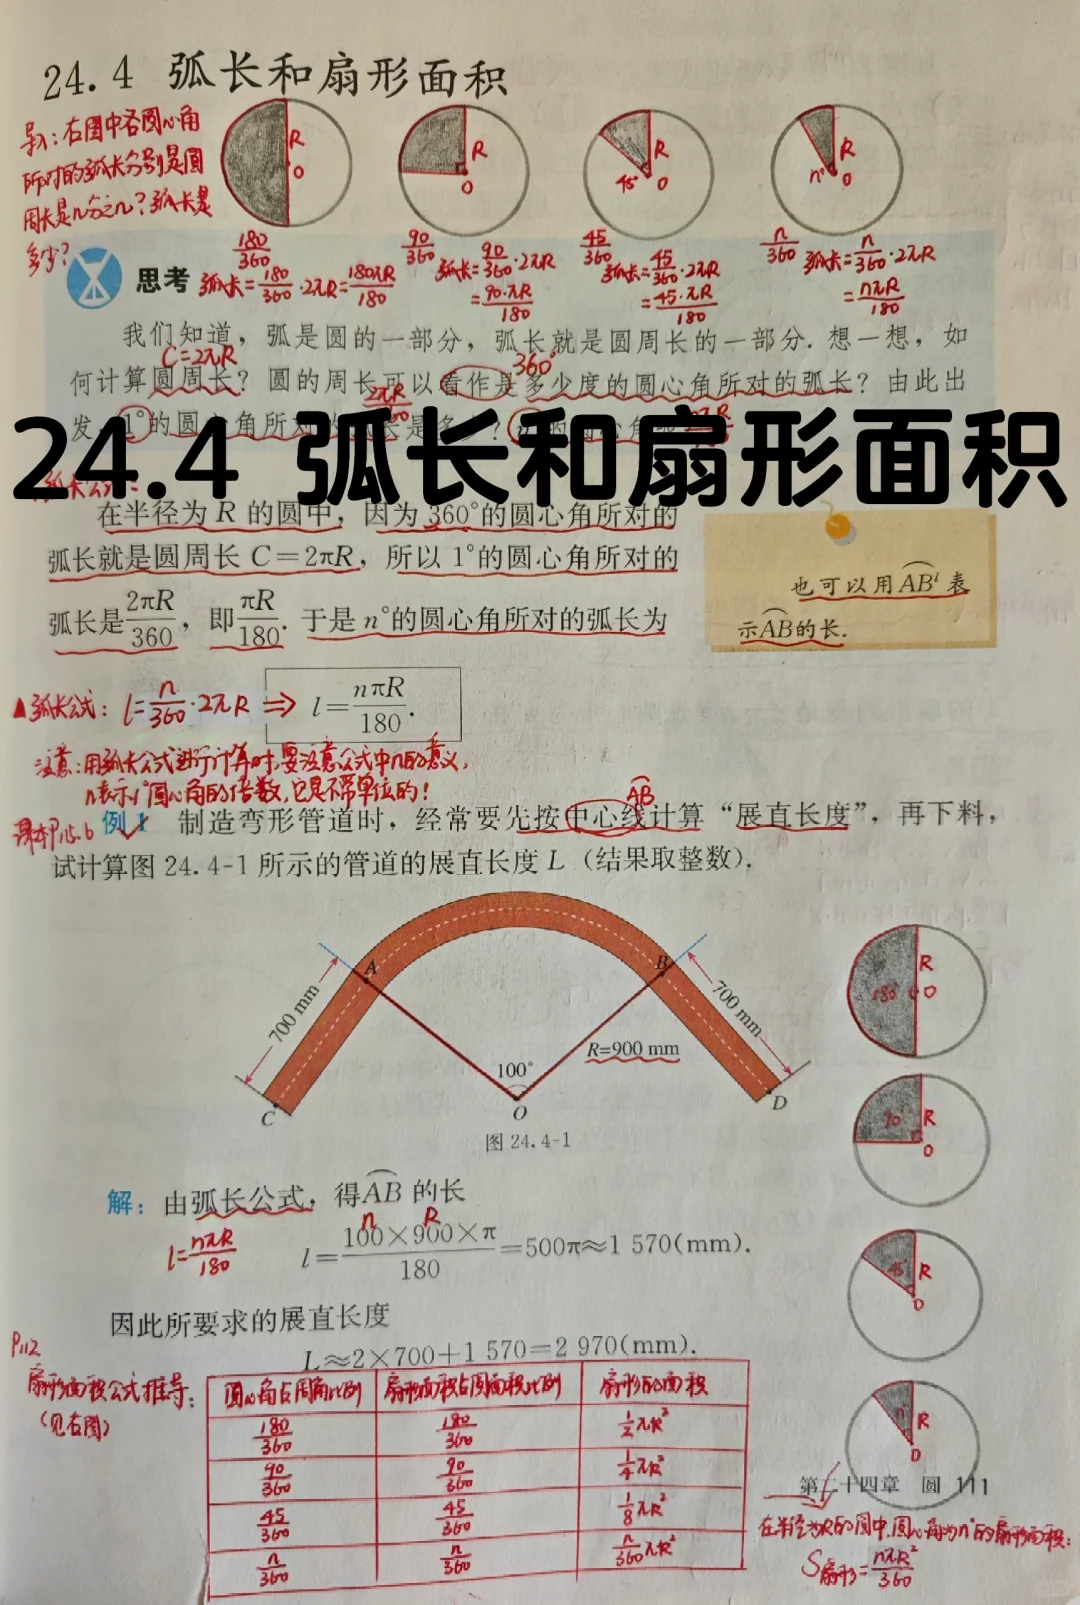 24.4 弧长和扇形面积
导入:右图中各圆心角
所对的弧长分别是圆
周长是几分之几?弧长是
多少?
R
O
R
O
R
45° O
R
n° O
180/360
弧长=180/360·2πR=180πR/180
90/360
弧长=90/360·2πR
=90·πR/180
45/360
弧长=45/360·2πR
=45·πR/180
n/360
弧长=n/360·2πR
=nπR/180
思考
我们知道,弧是圆的一部分,弧长就是圆周长的一部分.想一想,如
C=2πR
360°
何计算圆周长?圆的周长可以看作是多少度的圆心角所对的弧长?由此出
发,1°的圆心角所对
24.4 弧长和扇形面积
在半径为 R 的圆中,因为 360°的圆心角所对的
弧长就是圆周长 C=2πR,所以 1°的圆心角所对的
弧长是2πR/360,即πR/180.于是 n°的圆心角所对的弧长为
也可以用AB l 表
示AB的长.
▲弧长公式:l=n/360·2πR ⇒ l=nπR/180.
注意:用弧长公式进行计算时,要注意公式中n的意义,
n表示1°圆心角的倍数,它是不带单位的!
AB
例1 制造弯形管道时,经常要先按中心线计算“展直长度”,再下料,
试计算图 24.4-1 所示的管道的展直长度 L(结果取整数).
A
B
700 mm
700 mm
R=900 mm
100°
C
O
D
图 24.4-1
180° O
R
90°
R
O
45°
R
O
n°
R
O
解:由弧长公式,得AB 的长
n R
l=nπR/180
l=100×900×π/180=500π≈1 570(mm).
因此所要求的展直长度
L≈2×700+1 570=2 970(mm).
P112
扇形面积公式推导:
(见右图)
圆心角占周角比例 扇形面积占圆面积比例 扇形的面积
180/360 180/360 1/2πR²
90/360 90/360 1/4πR²
45/360 45/360 1/8πR²
n/360 n/360 n/360πR²
第二十四章 圆 111
在半径为R的圆中,圆心角为n°的扇形面积:
S扇形=nπR²/360